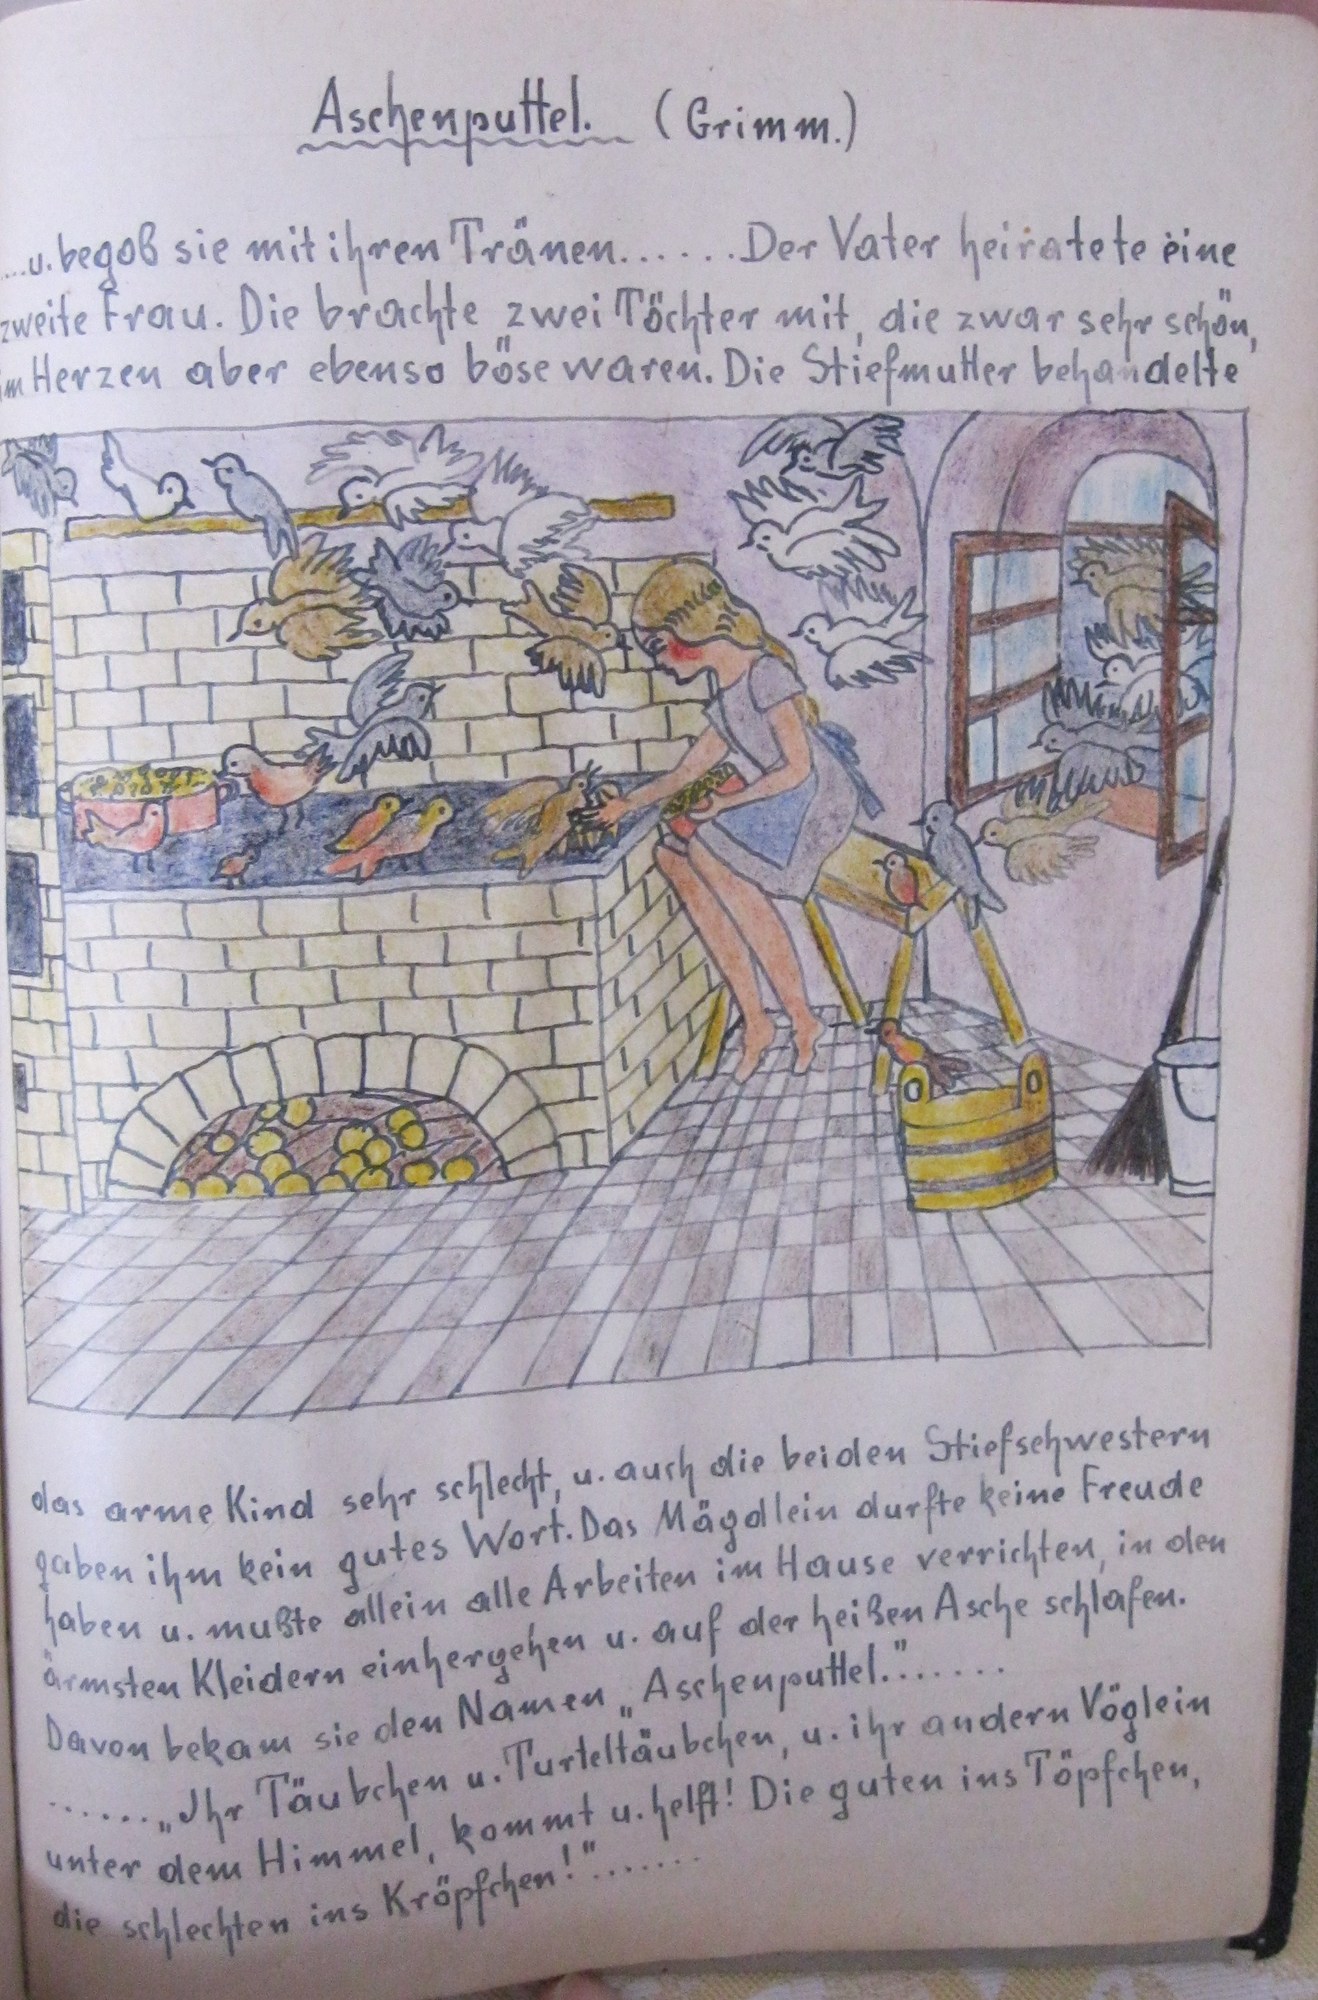 Aschenputtel. (Grimm.)
....u. begoß sie mit ihren Tränen.......Der Vater heiratete eine
zweite Frau. Die brachte zwei Töchter mit, die zwar sehr schön,
im Herzen aber ebenso böse waren. Die Stiefmutter behandelte
das arme Kind sehr schlecht, u. auch die beiden Stiefschwestern
gaben ihm kein gutes Wort. Das Mägdlein durfte keine Freude
haben u. mußte allein alle Arbeiten im Hause verrichten, in den
ärmsten Kleidern einhergehen u. auf der heißen Asche schlafen.
Davon bekam sie den Namen „Aschenputtel.".......
.......„Ihr Täubchen u. Turteltäubchen, u. ihr andern Vöglein
unter dem Himmel, kommt u. helft! Die guten ins Töpfchen,
die schlechten ins Kröpfchen!".......